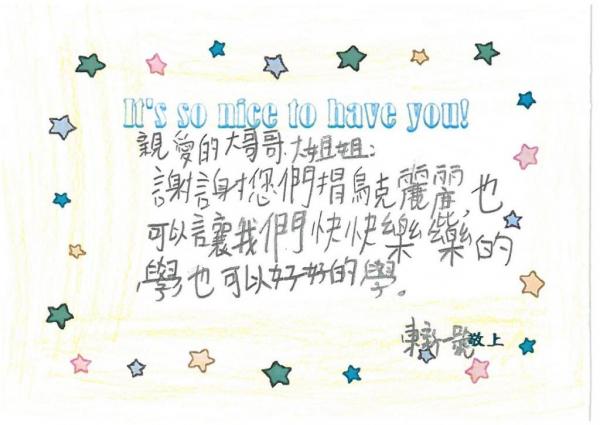 It's so nice to have you!
親愛的大哥哥大姐姐：
謝謝您們捐烏克麗麗，也
可以讓我們快快樂樂的
學也可以好好的學。
東新一號敬上